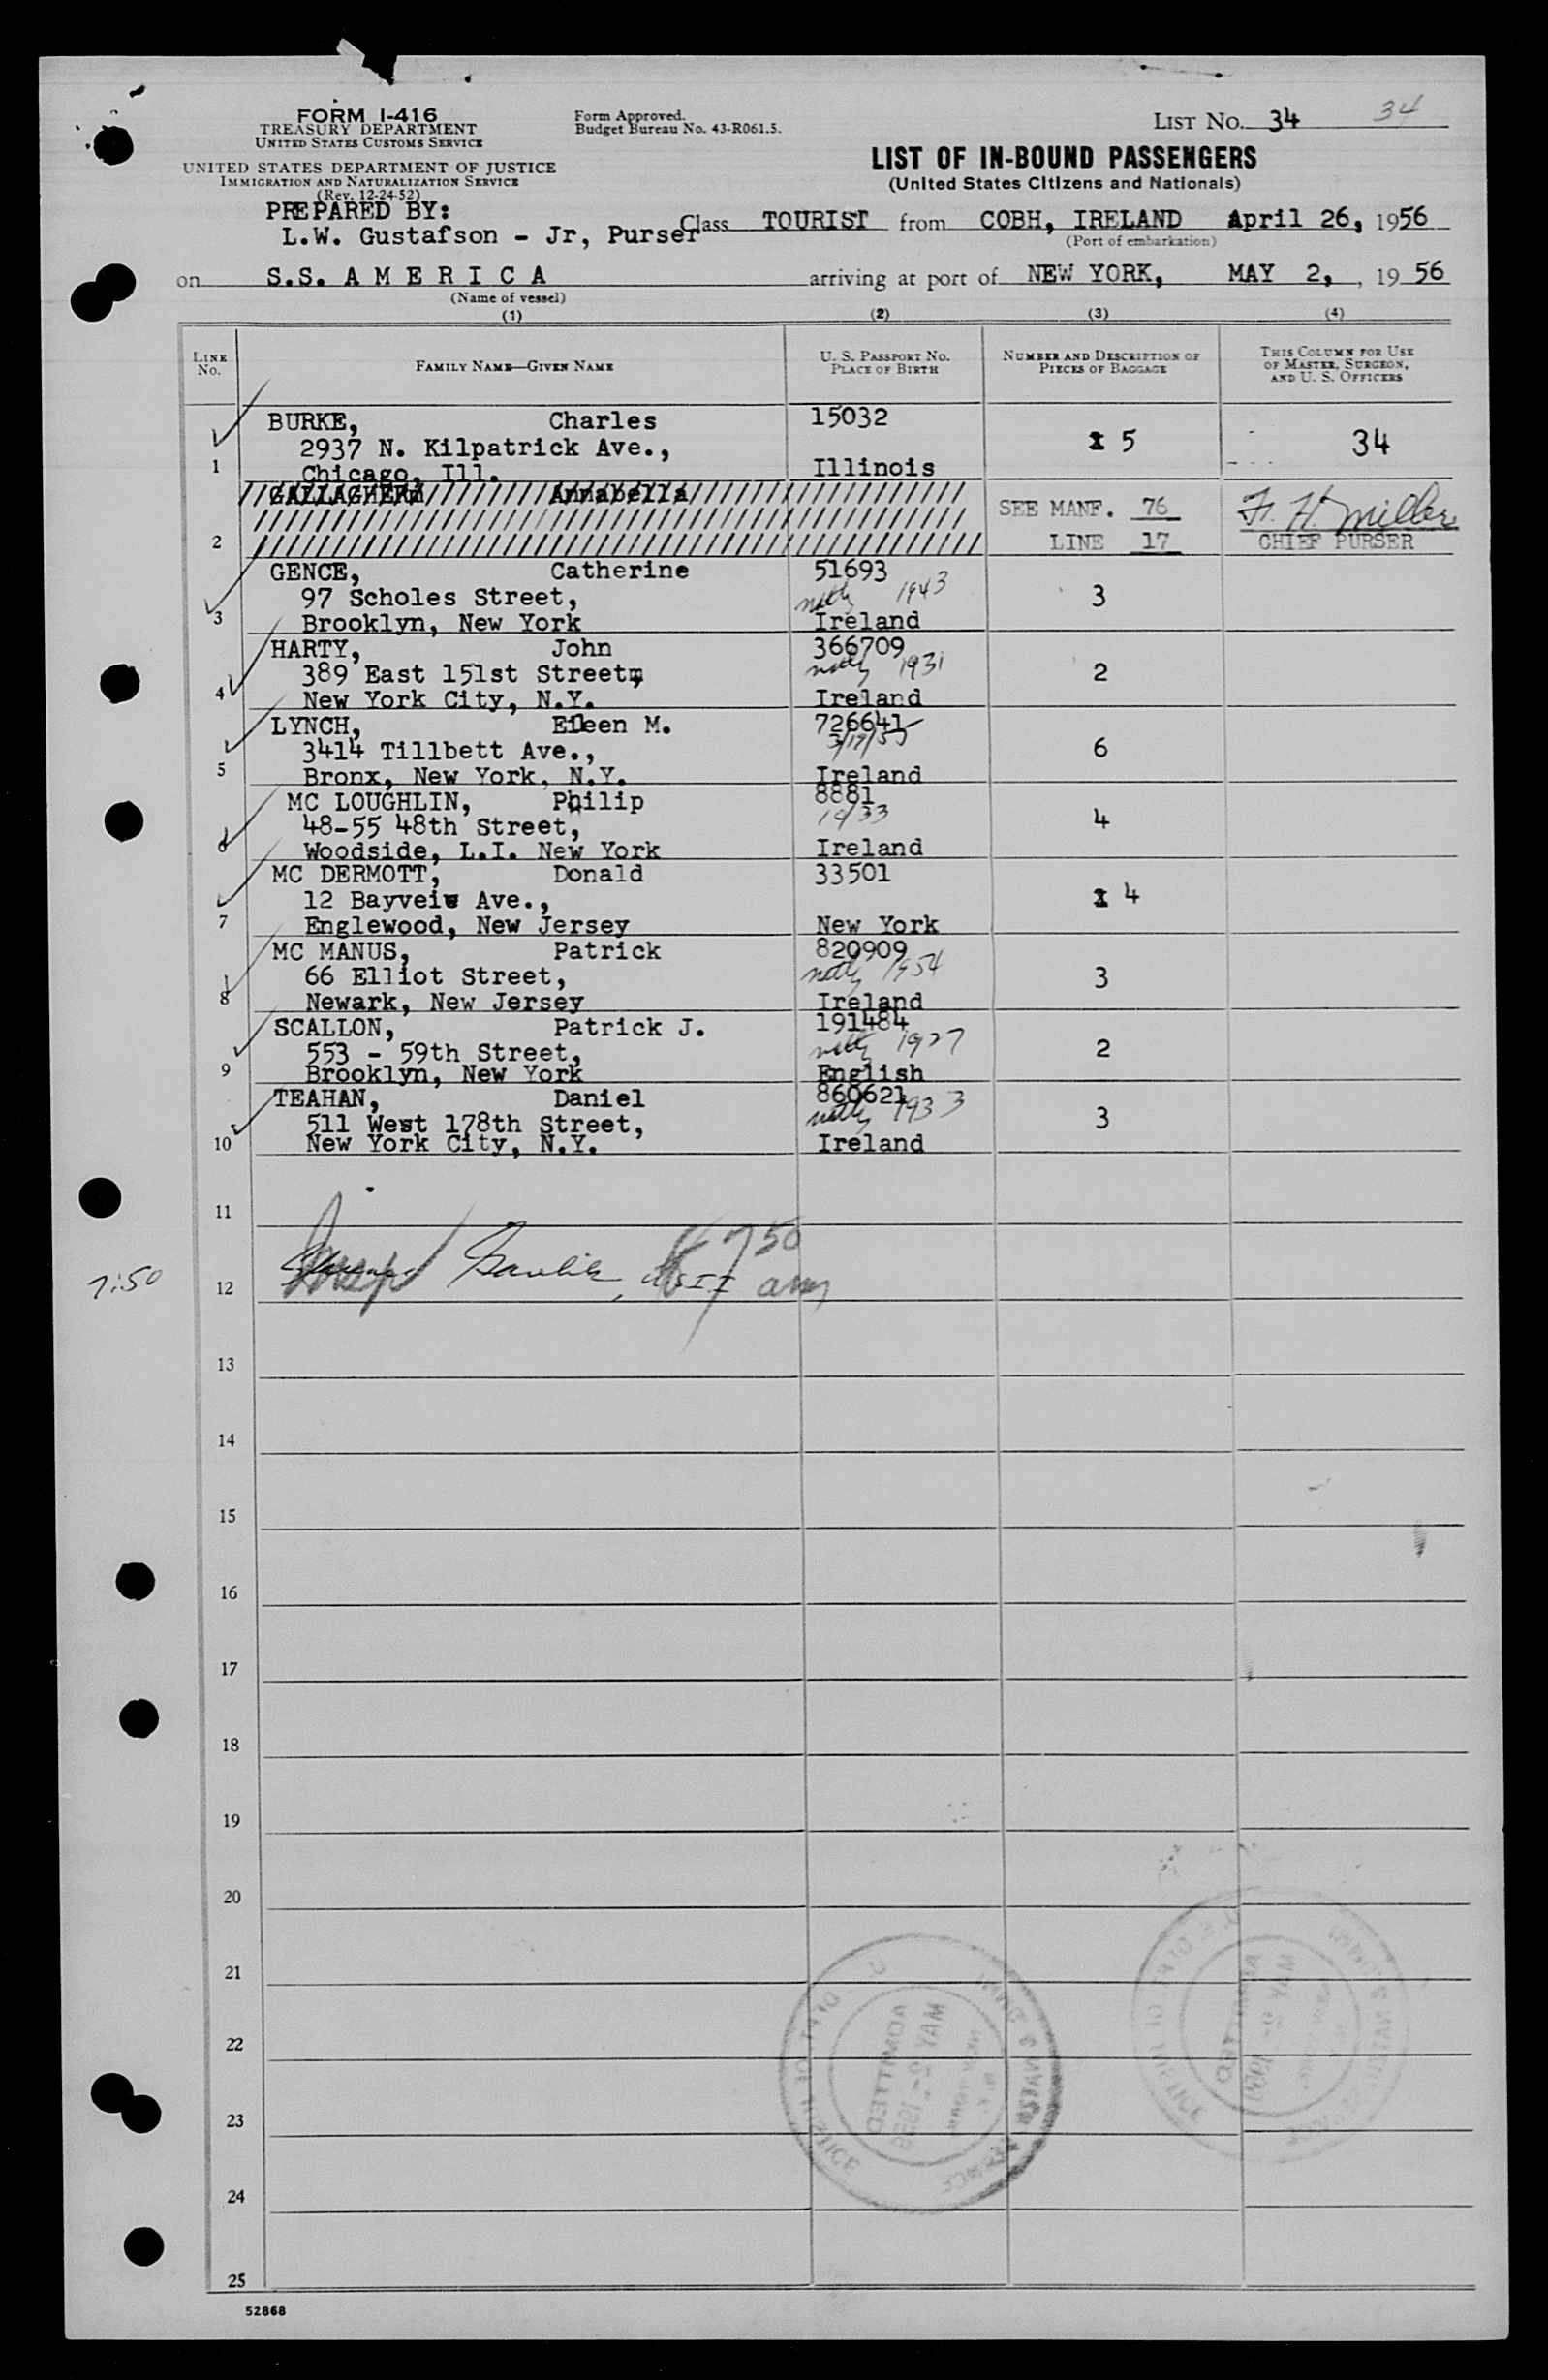 FORM I-416
TREASURY DEPARTMENT
UNITED STATES CUSTOMS SERVICE
UNITED STATES DEPARTMENT OF JUSTICE
IMMIGRATION AND NATURALIZATION SERVICE
(Rev. 12-24-52)
Form Approved.
Budget Bureau No. 43-R061.5.
LIST No. 34 34
LIST OF IN-BOUND PASSENGERS
(United States Citizens and Nationals)
PREPARED BY:
L.W. Gustafson - Jr, Purser
Class TOURIST from COBH, IRELAND April 26, 1956
(Port of embarkation)
on S.S. A M E R I C A arriving at port of NEW YORK, MAY 2, , 19 56
(Name of vessel)
(1) (2) (3) (4)
LINE No. FAMILY NAME—GIVEN NAME U. S. PASSPORT No. PLACE OF BIRTH NUMBER AND DESCRIPTION OF PIECES OF BAGGAGE THIS COLUMN FOR USE OF MASTER, SURGEON, AND U. S. OFFICERS
BURKE, Charles 15032
2937 N. Kilpatrick Ave., 5 34
1 Chicago, Ill. Illinois
GALLAGHER Annabella
SEE MANF. 76 F. H. Miller
2 LINE 17 CHIEF PURSER
GENCE, Catherine 51693
97 Scholes Street, 1943 3
3 Brooklyn, New York Ireland
HARTY, John 366709
389 East 151st Street, 1931 2
4 New York City, N.Y. Ireland
LYNCH, Eileen M. 726641
3414 Tillbett Ave., 6
5 Bronx, New York, N.Y. Ireland
MC LOUGHLIN, Philip 8881
48-55 48th Street, 1933 4
6 Woodside, L.I. New York Ireland
MC DERMOTT, Donald 33501
12 Bayveiw Ave., 4
7 Englewood, New Jersey New York
MC MANUS, Patrick 820909
66 Elliot Street, 1954 3
8 Newark, New Jersey Ireland
SCALLON, Patrick J. 191484
553 - 59th Street, 1927 2
9 Brooklyn, New York English
TEAHAN, Daniel 860621
511 West 178th Street, 1933 3
10 New York City, N.Y. Ireland
11
750
7:50
12 am
13
14
15
16
17
18
19
20
21
22
23
24
25
ADMITTED
MAY 2 - 1956
52868